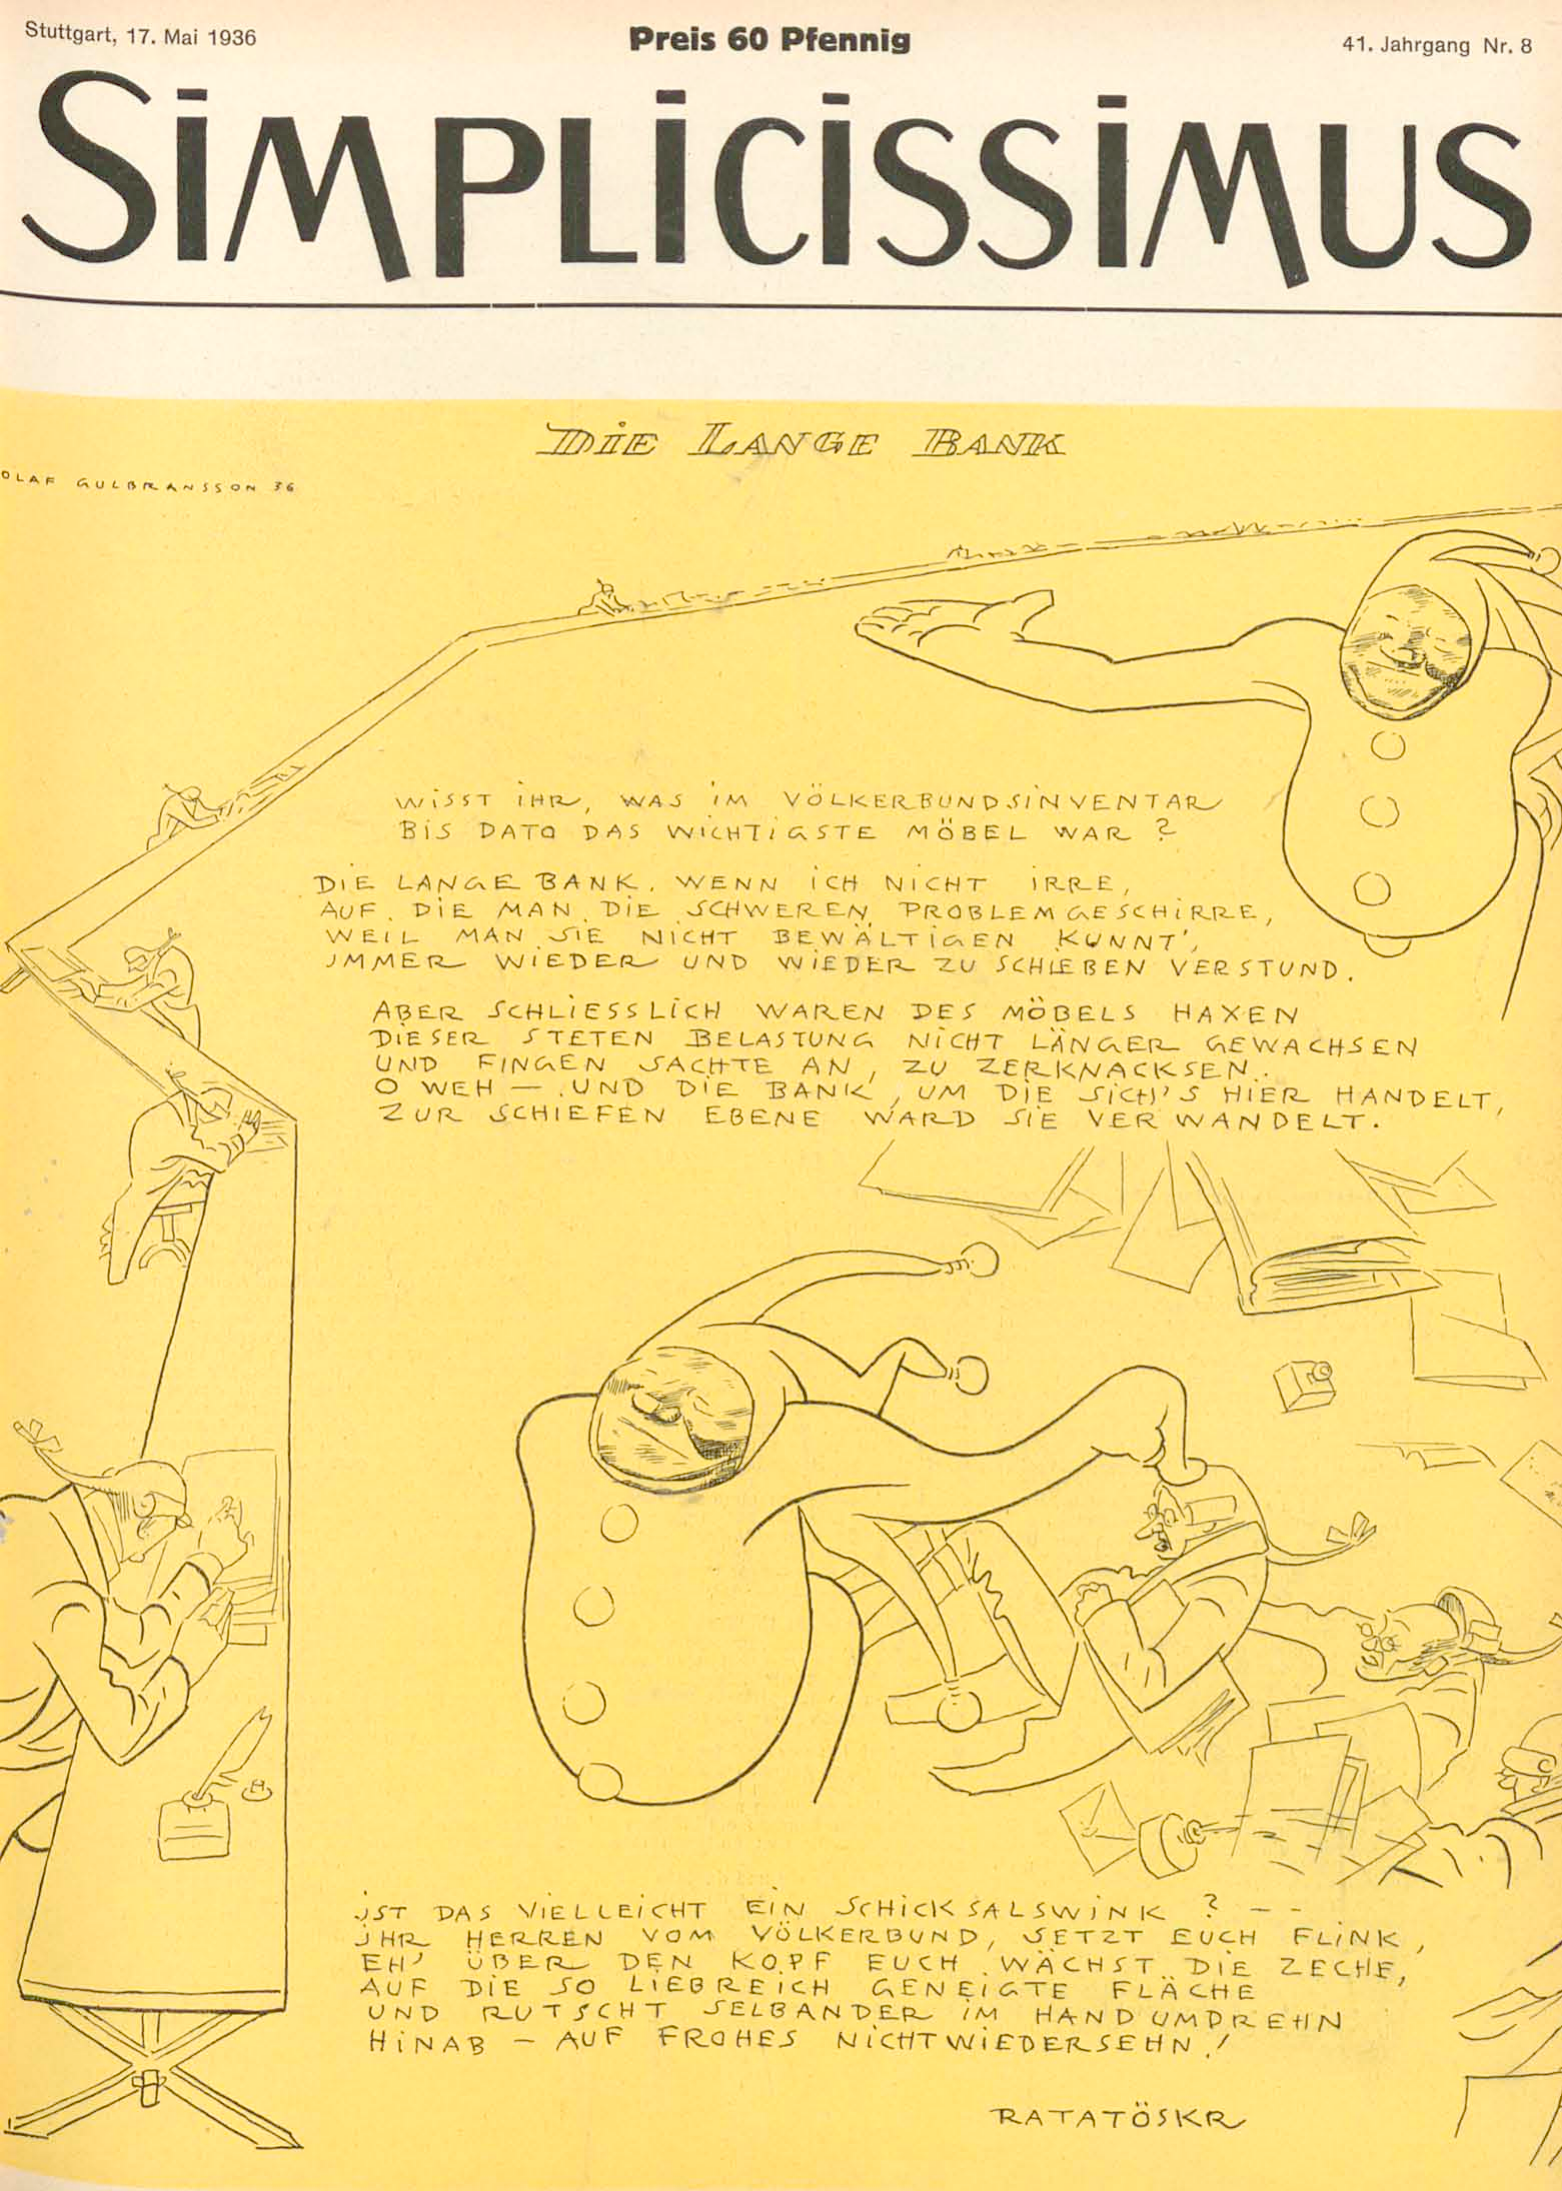 Stuttgart, 17. Mai 1936
Preis 60 Pfennig
41. Jahrgang Nr. 8
SIMPLICISSIMUS
DIE LANGE BANK
OLAF GULBRANSSON 36
WISST IHR, WAS IM VÖLKERBUNDSINVENTAR
BIS DATO DAS WICHTIGSTE MÖBEL WAR ?
DIE LANGE BANK. WENN ICH NICHT IRRE,
AUF DIE MAN DIE SCHWEREN PROBLEMGESCHIRRE,
WEIL MAN SIE NICHT BEWÄLTIGEN KUNNT',
IMMER WIEDER UND WIEDER ZU SCHIEBEN VERSTUND.
ABER SCHLIESSLICH WAREN DES MÖBELS HAXEN
DIESER STETEN BELASTUNG NICHT LÄNGER GEWACHSEN
UND FINGEN SACHTE AN, ZU ZERKNACKSEN.
O WEH — UND DIE BANK, UM DIE SICH'S HIER HANDELT,
ZUR SCHIEFEN EBENE WARD SIE VERWANDELT.
IST DAS VIELLEICHT EIN SCHICKSALSWINK ? – –
IHR HERREN VOM VÖLKERBUND, SETZT EUCH FLINK,
EH' ÜBER DEN KOPF EUCH WÄCHST DIE ZECHE,
AUF DIE SO LIEBREICH GENEIGTE FLÄCHE
UND RUTSCHT SELBANDER IM HANDUMDREHN
HINAB – AUF FROHES NICHTWIEDERSEHN!
RATATÖSKR